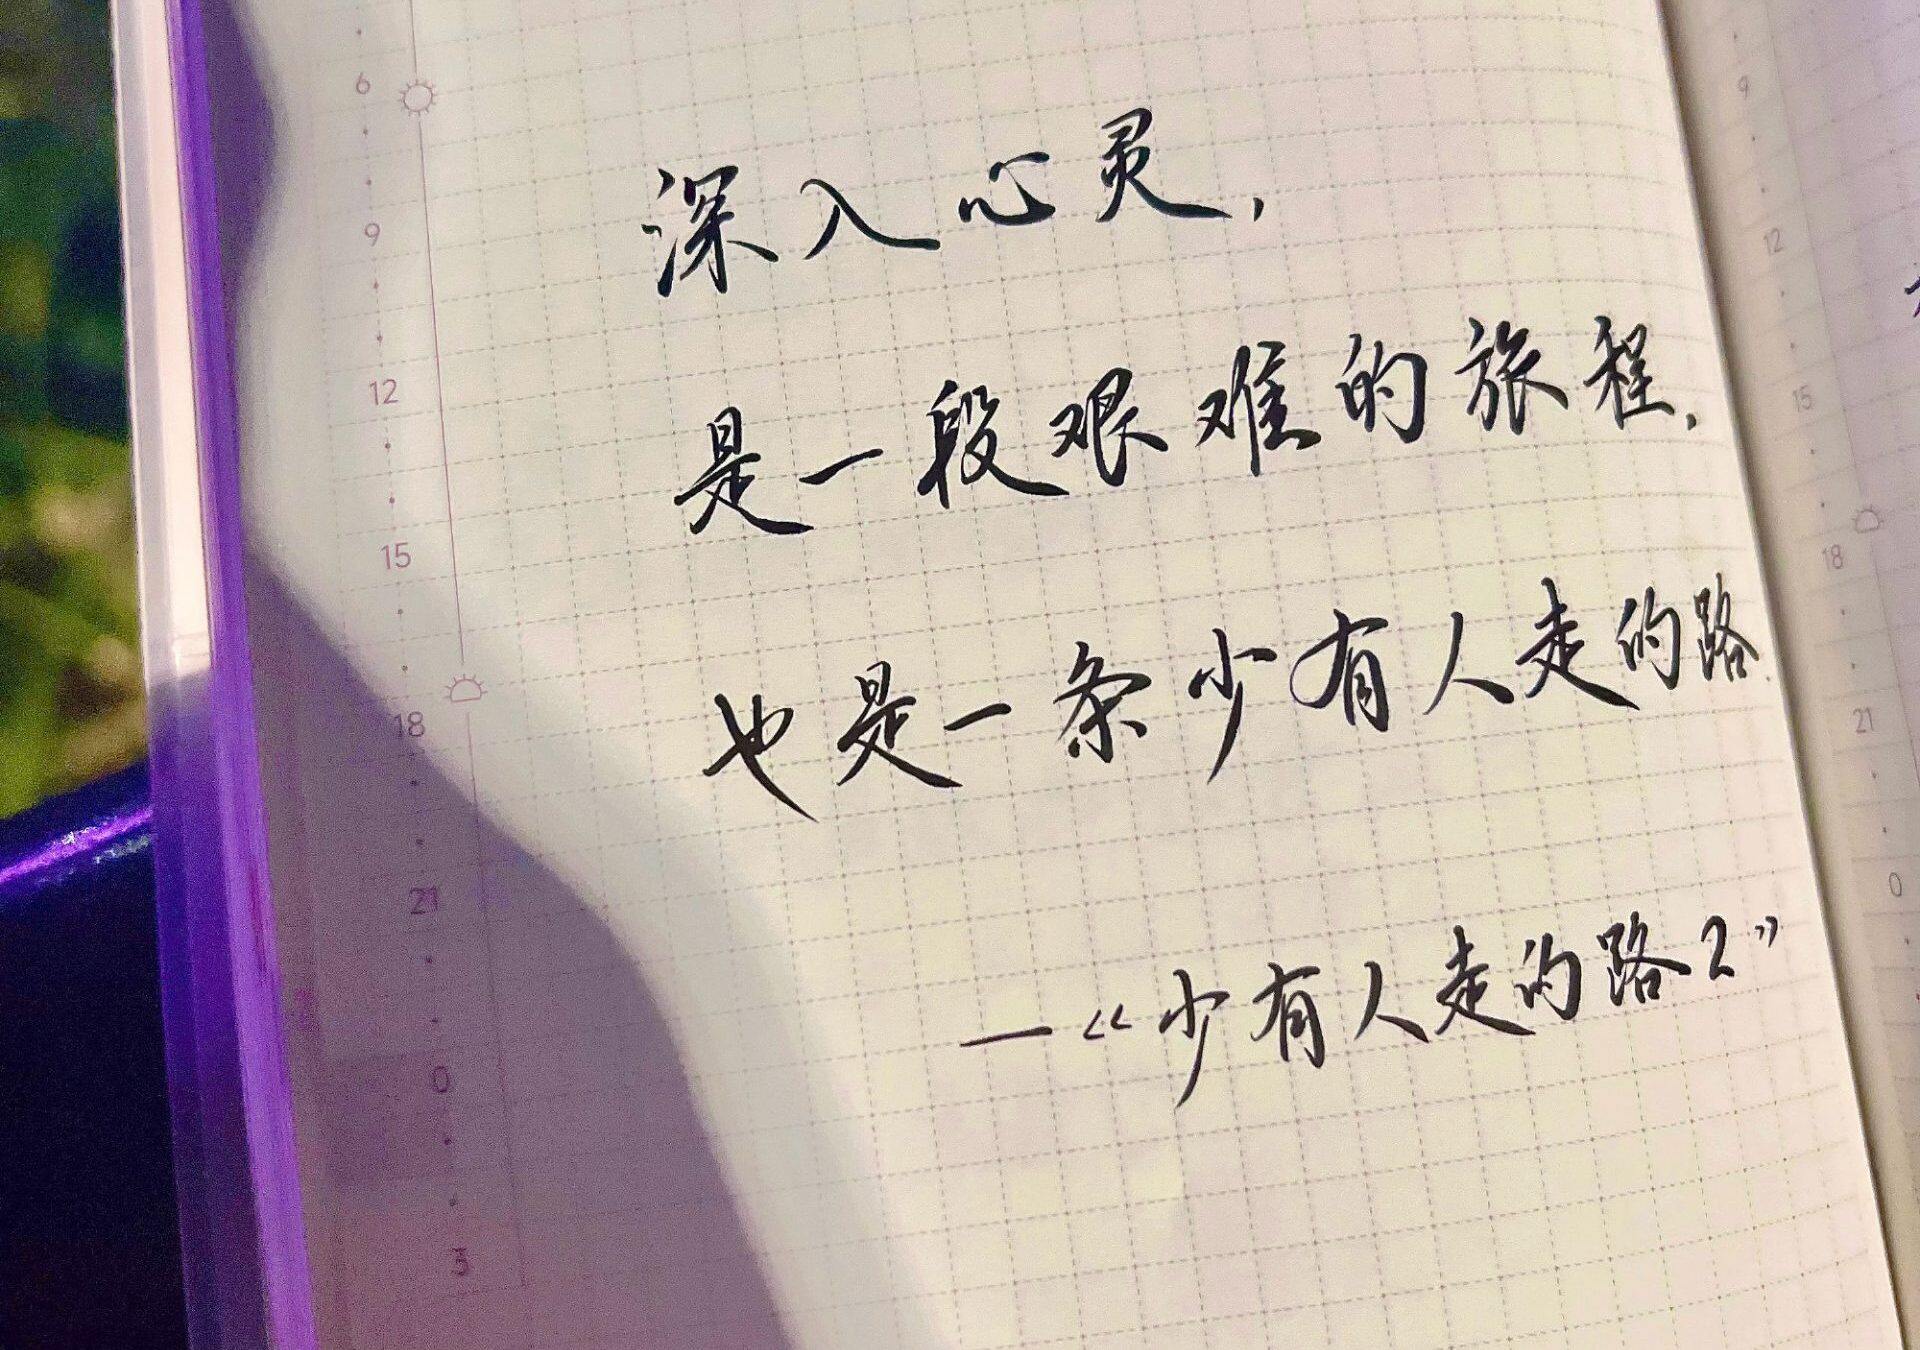 深入心灵,
是一段艰难的旅程,
也是一条少有人走的路.
—《少有人走的路2》
6
9
12
15
18
21
0
3
9
12
15
18
21
0